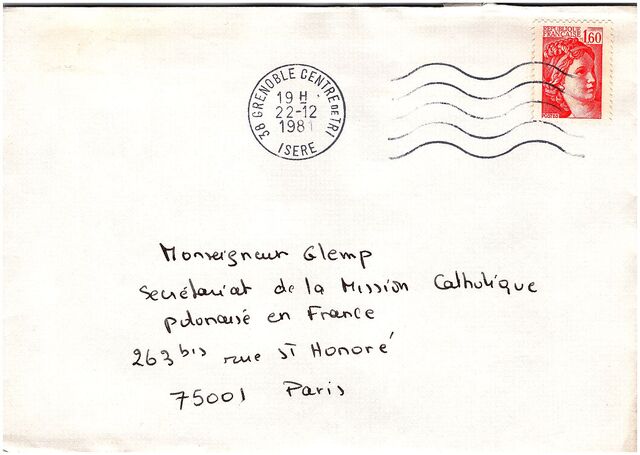 REPUBLIQUE
FRANÇAISE
1,60
POSTES
38 GRENOBLE CENTRE DE TRI
19 H
22-12
1981
ISERE
Monseigneur Glemp
Secrétariat de la Mission Catholique
polonaise en France
263 bis rue St Honoré
75001 Paris